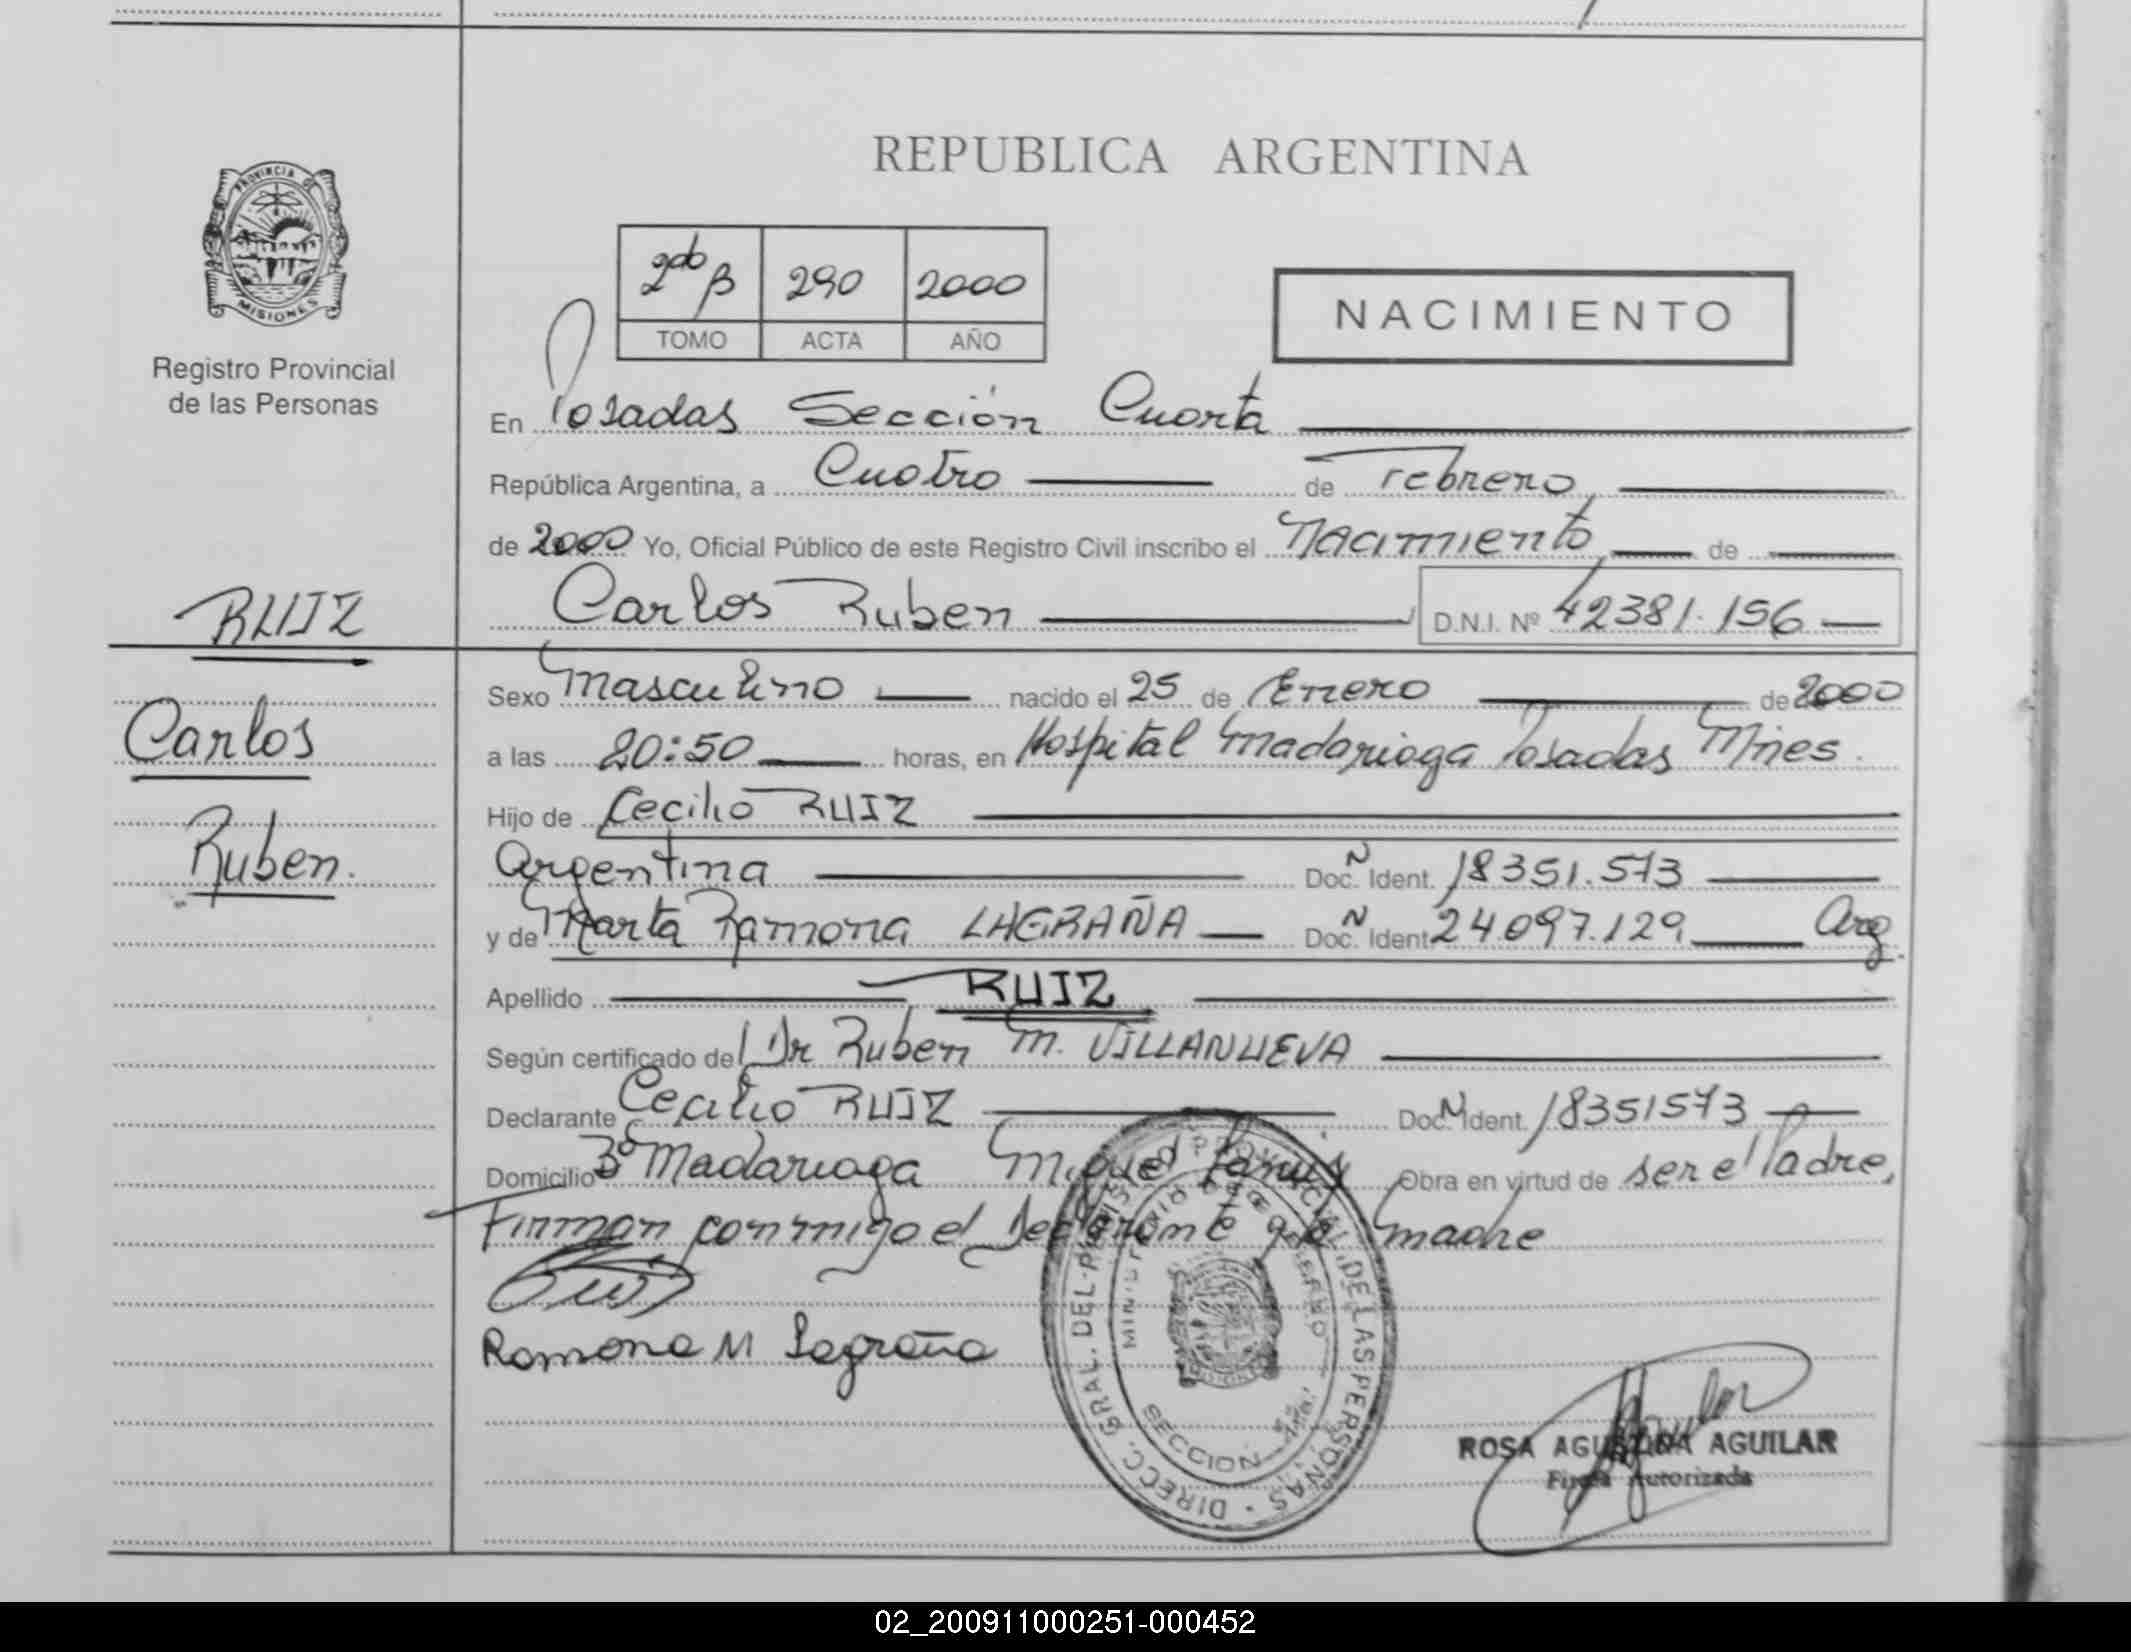 REPUBLICA ARGENTINA
PROVINCIA DE
MISIONES
Registro Provincial
de las Personas
2do B 290 2000
TOMO ACTA AÑO
NACIMIENTO
En Posadas Sección Cuarta
República Argentina, a Cuatro de Febrero
de 2000 Yo, Oficial Público de este Registro Civil inscribo el Nacimiento de
Carlos Ruben D.N.I. Nº 42381.156
RUIZ
Carlos
Ruben.
Sexo Masculino nacido el 25 de Enero de 2000
a las 20:50 horas, en Hospital Madariaga Posadas Mnes.
Hijo de Cecilio RUIZ
Argentina Doc. N Ident. 18351.573
y de Marta Ramona LAGRAÑA Doc. N Ident. 24.097.129 Arg.
Apellido RUIZ
Según certificado del Dr Ruben M. VILLANUEVA
Declarante Cecilio RUIZ Doc. N Ident. 18351573
Domicilio Bº Madariaga Miguel Lanus Obra en virtud de ser el Padre,
Firman conmigo el Declarante y la madre
Ramona M Lagraña
DIRECC. GRAL. DEL REGISTRO PROVINCIAL DE LAS PERSONAS
SECCION
ROSA AGUSTINA AGUILAR
Firma Autorizada
02_200911000251-000452